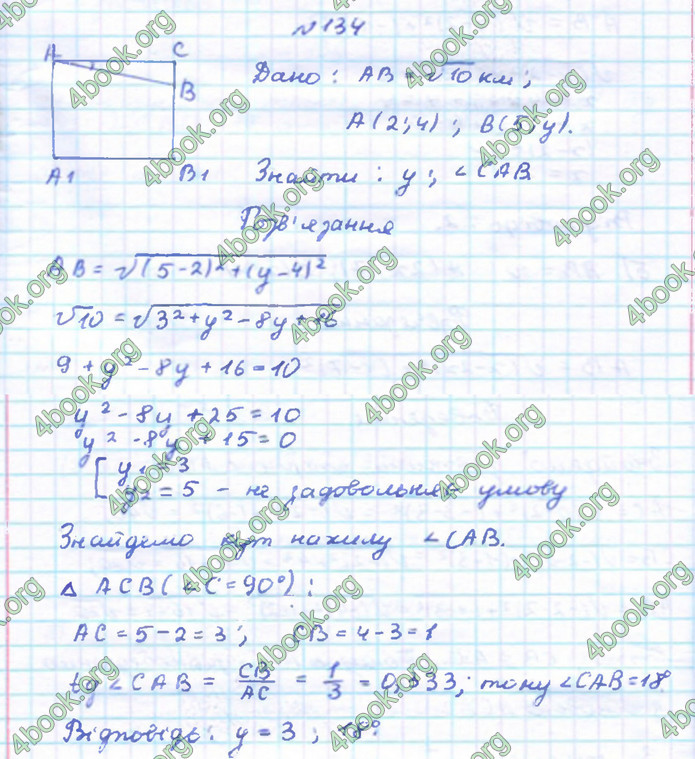 №134
A C
B
A1 B1
Дано: AB = √10 км;
A(2;4); B(5;y).
Знайти: y; ∠CAB.
Розв'язання
AB = √(5-2)²+(y-4)²
√10 = √3²+y²-8y+16
9+y²-8y+16=10
y²-8y+25=10
y²-8y+15=0
[ y1=3
y2=5 - не задовольняє умову
Знайдемо кут нахилу ∠CAB.
△ ACB (∠C=90°):
AC=5-2=3; CB=4-3=1
tg∠CAB = CB/AC = 1/3 = 0,333; тому ∠CAB=18°
Відповідь: y=3; 18°.
4book.org